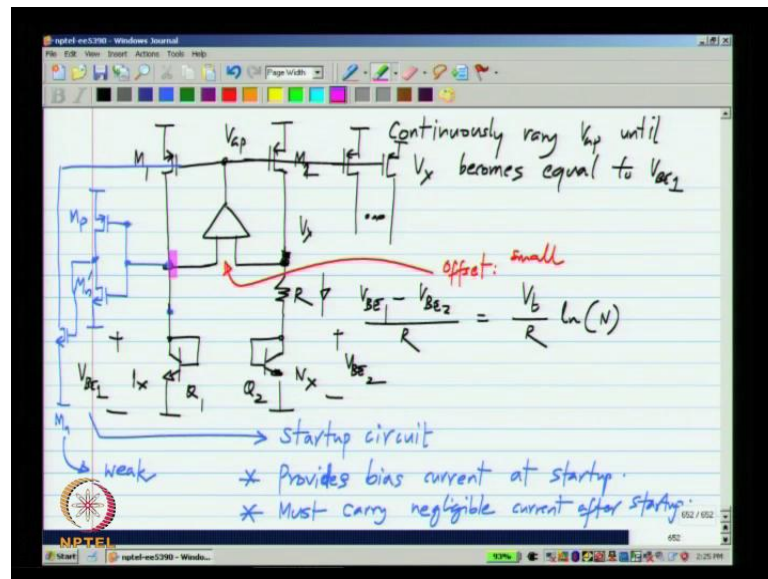 nptel-ee5390 - Windows Journal
File Edit View Insert Actions Tools Help
Page Width
B I
Continuously vary Vap until
Vx becomes equal to VBE1
M1
Vap
M2
...
Mp
Mn'
Vx
offset: small
R
VBE1 - VBE2 / R = Vb / R ln(N)
+
+
VBE1
1x
Q1
Q2
Nx
VBE2
-
-
Mn
Startup circuit
weak
* Provides bias current at startup.
* Must carry negligible current after startup.
652 / 652
652
NPTEL
Start
nptel-ee5390 - Windo...
93%
2:25 PM